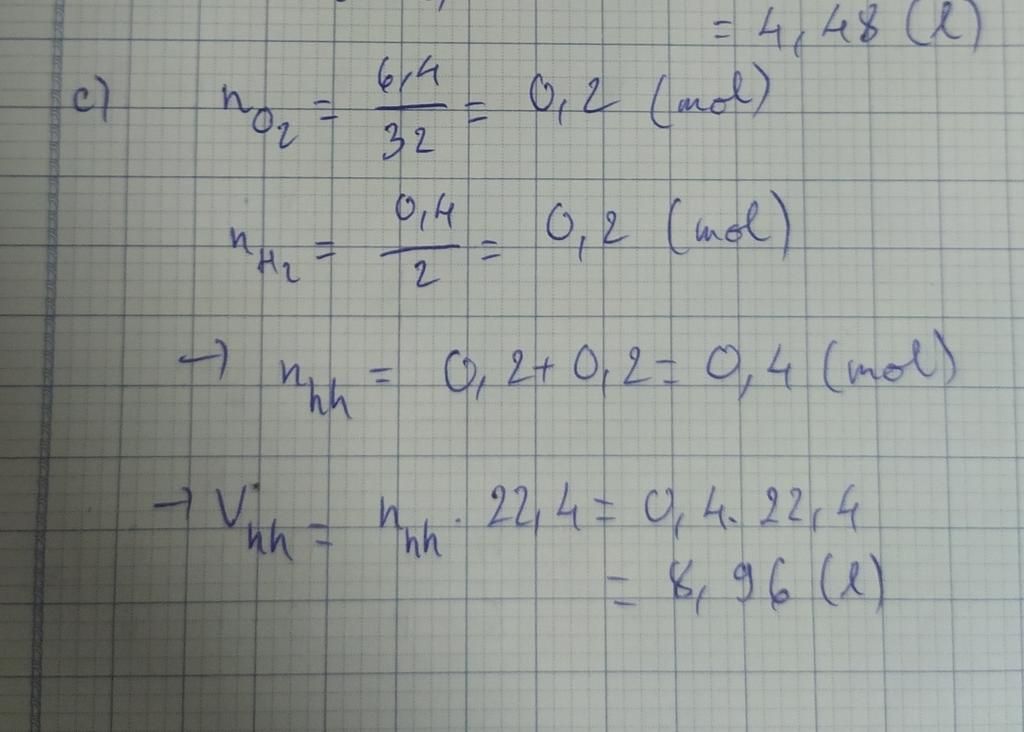 = 4,48 (l)
c) nO2 = 6,4/32 = 0,2 (mol)
nH2 = 0,4/2 = 0,2 (mol)
→ nhh = 0,2 + 0,2 = 0,4 (mol)
→ Vhh = nhh . 22,4 = 0,4 . 22,4
= 8,96 (l)